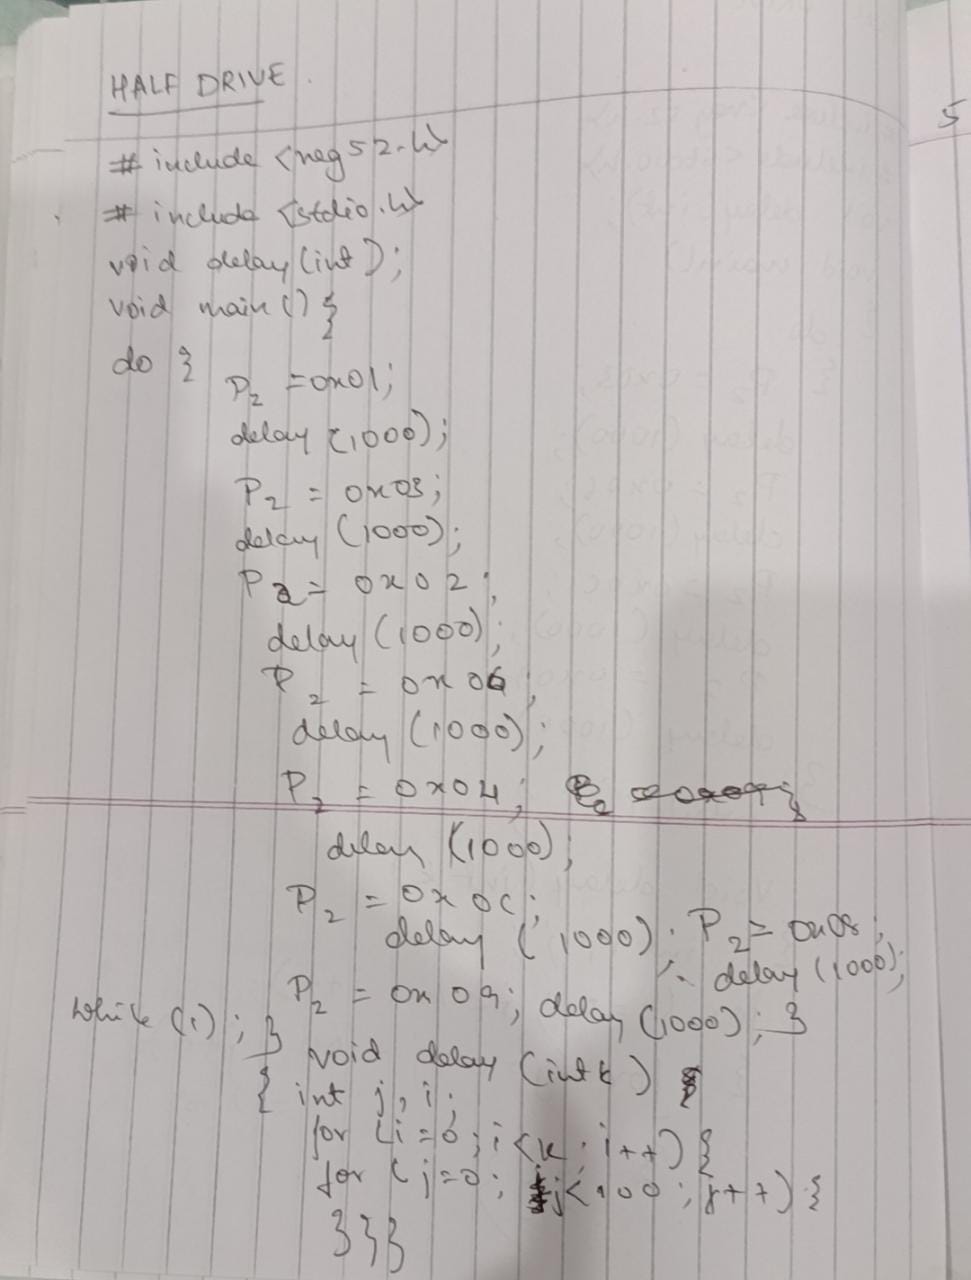 HALF DRIVE
# include <reg52.h>
# include <stdio.h>
void delay(int);
void main() {
do {
P2 = 0x01;
delay (1000);
P2 = 0x03;
delay (1000);
P2 = 0x02;
delay (1000);
P2 = 0x06;
delay (1000);
P2 = 0x04;
delay (1000);
P2 = 0x0C;
delay (1000); P2 = 0x08;
delay (1000);
P2 = 0x09; delay (1000); }
while (1); }
void delay (int k)
{ int j, i;
for (i=0; i<k; i++) {
for (j=0; j<100; j++) {
}}}
5